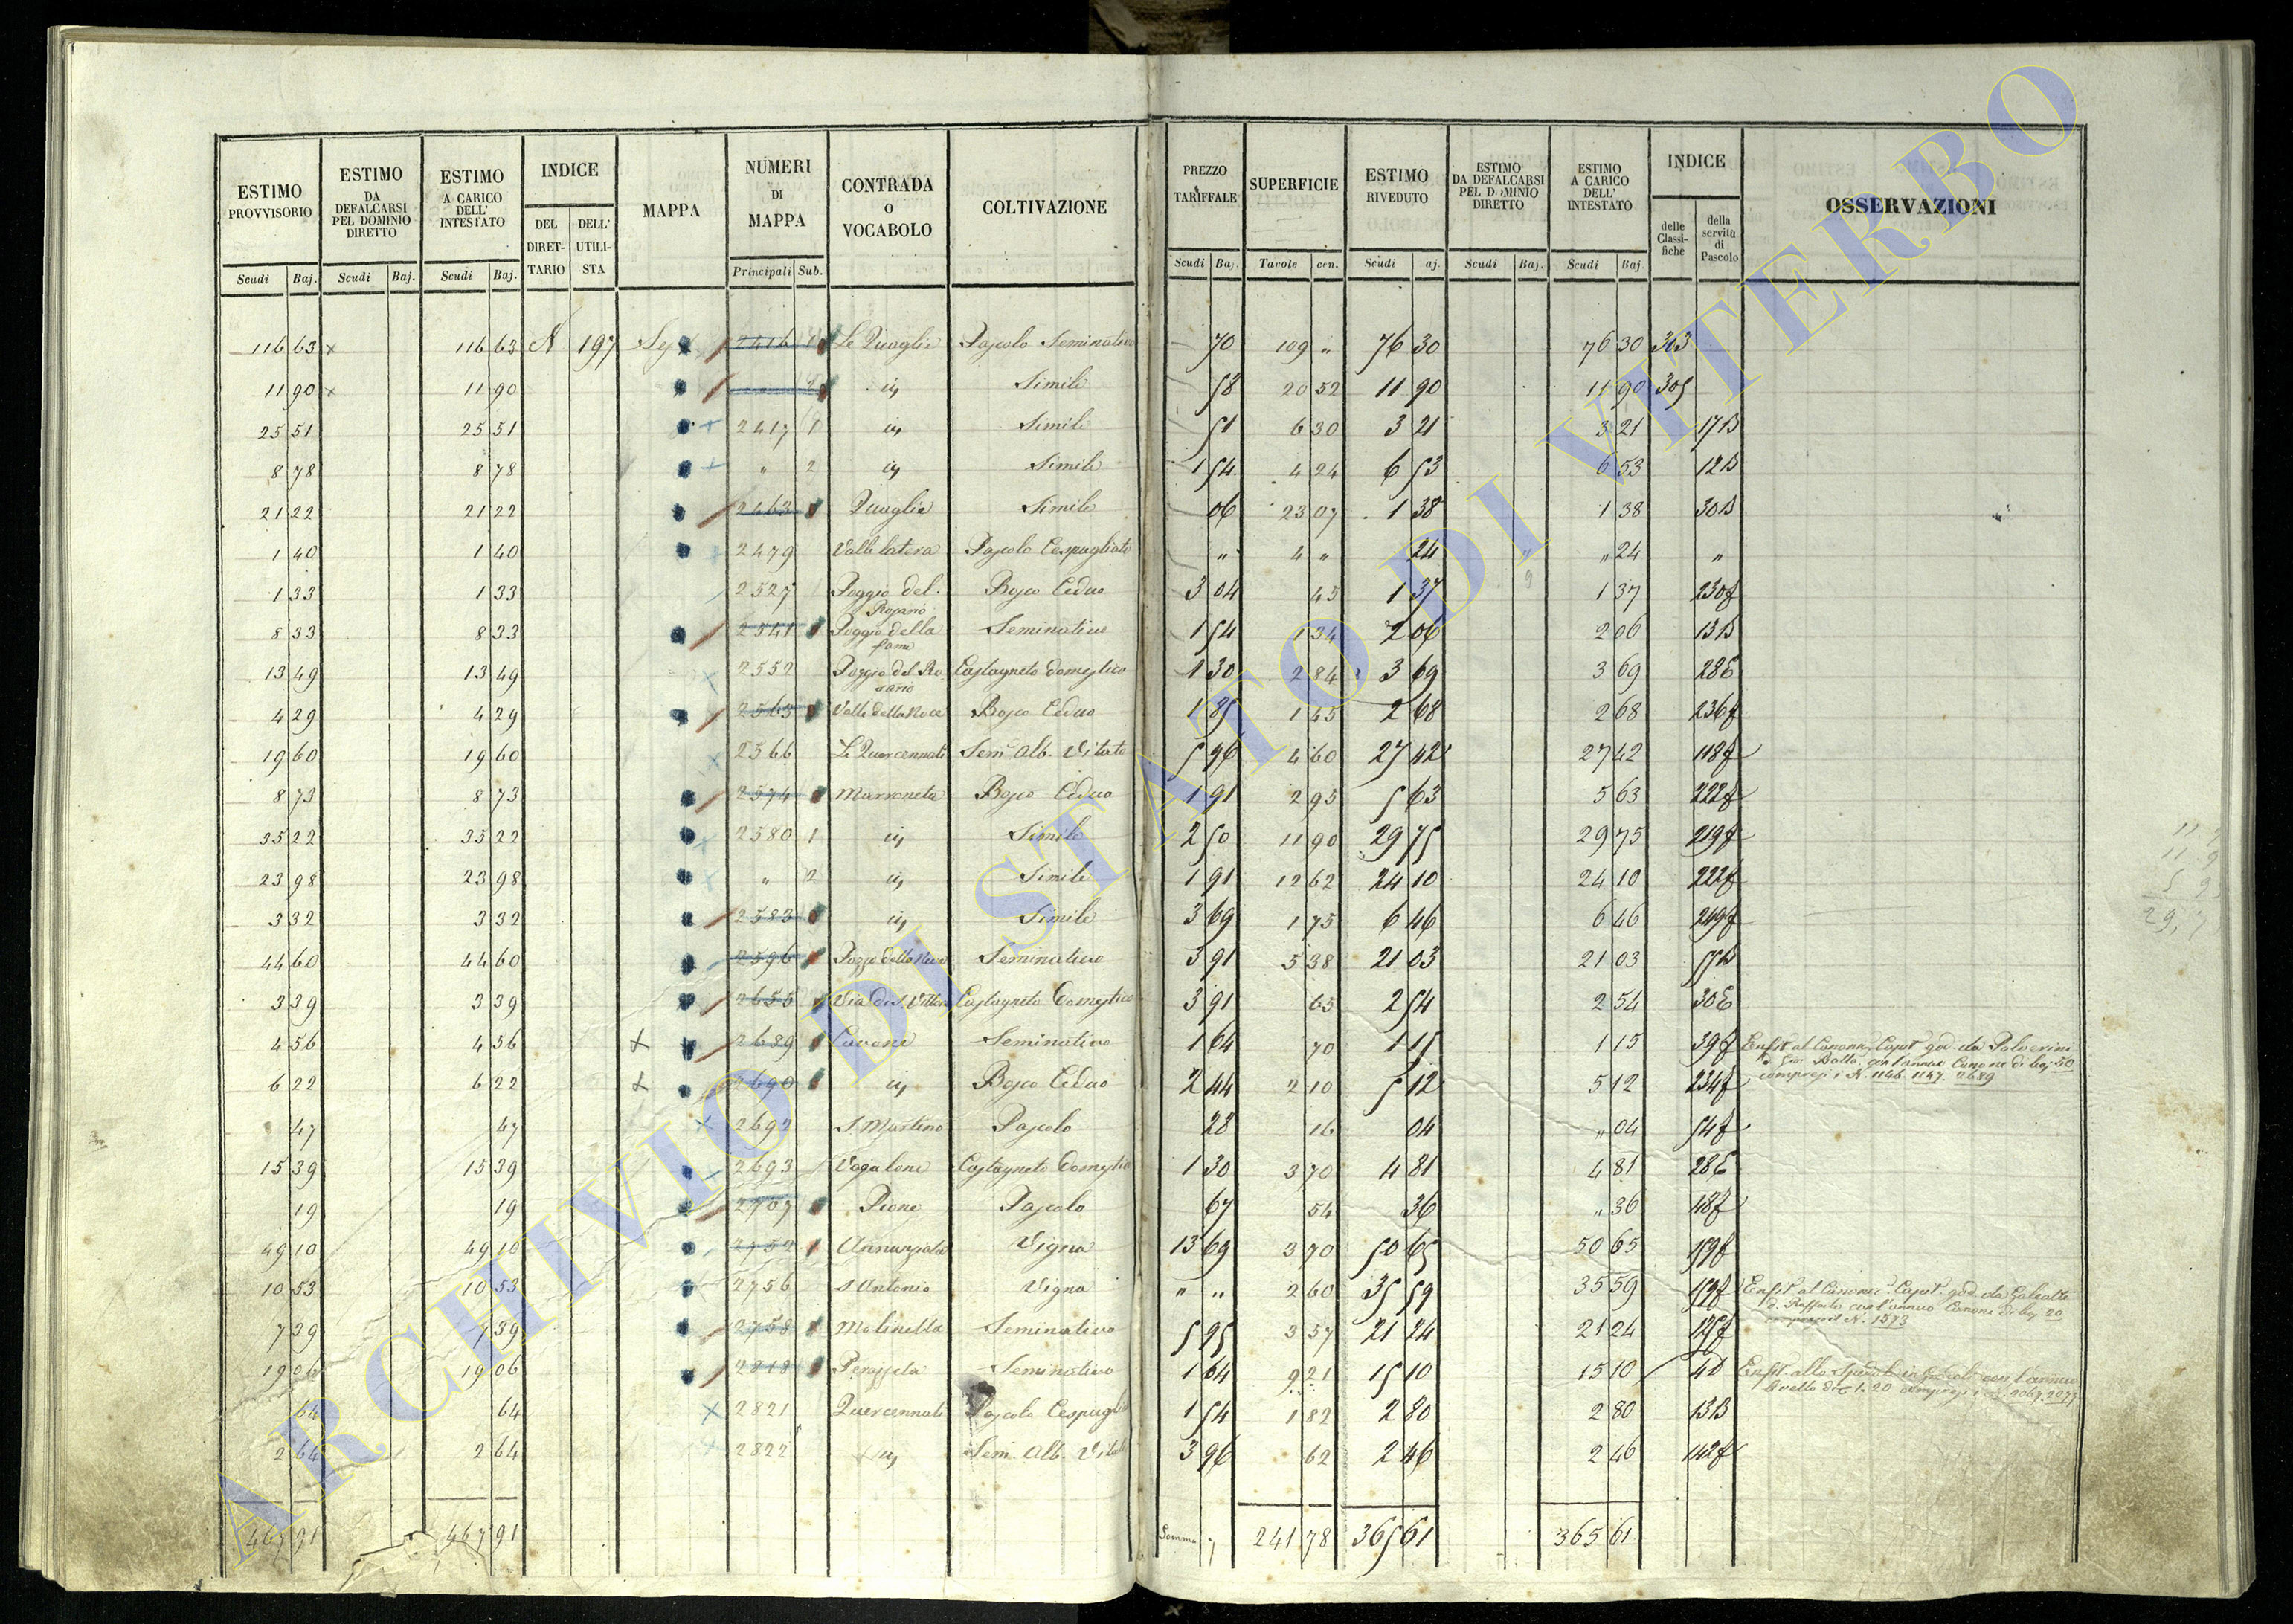 ESTIMO PROVVISORIO Scudi Baj. ESTIMO DA DEFALCARSI PEL DOMINIO DIRETTO Scudi Baj. ESTIMO A CARICO DELL' INTESTATO Scudi Baj. INDICE DEL DIRETTARIO DELL' UTILISTA MAPPA NUMERI DI MAPPA Principali Sub. CONTRADA O VOCABOLO COLTIVAZIONE PREZZO TARIFFALE Scudi Baj. SUPERFICIE Tavole cen. ESTIMO RIVEDUTO Scudi aj. ESTIMO DA DEFALCARSI PEL DOMINIO DIRETTO Scudi Baj. ESTIMO A CARICO DELL' INTESTATO Scudi Baj. INDICE delle Classifiche della servitù di Pascolo OSSERVAZIONI
116 63 116 63 N 197 2416 1 Le Quaglie Pascolo Seminativo 70 109 „ 76 30 76 30 303
11 90 11 90 2 id Simile 58 20 52 11 90 11 90 305
25 51 25 51 2417 1 id Simile 51 6 30 3 21 3 21 17B
8 78 8 78 „ 2 id Simile 1 54 4 24 6 53 6 53 12B
21 22 21 22 2463 Quaglie Simile 06 23 07 1 38 1 38 30B
1 40 1 40 2479 Valle latera Pascolo Cespugliato „ 4 „ 24 „ 24 „
1 33 1 33 2527 Poggio del Rosario Bosco Ceduo 3 04 45 1 37 1 37 230f
8 33 8 33 2541 Poggio della fame Seminativo 1 54 1 34 2 06 2 06 13B
13 49 13 49 2552 Poggio del Rosario Castagneto domestico 1 30 2 84 3 69 3 69 28E
4 29 4 29 2563 Valle della Noce Bosco Ceduo 1 85 1 45 2 68 2 68 236f
19 60 19 60 2566 Le Quercennate Sem. Alb. Vitato 5 96 4 60 27 42 27 42 118f
8 73 8 73 2574 Marroneta Bosco Ceduo 1 91 2 95 5 63 5 63 222f
35 22 35 22 2580 1 id Simile 2 50 11 90 29 75 29 75 219f
23 98 23 98 „ 2 id Simile 1 91 12 62 24 10 24 10 222f
3 32 3 32 2583 id Simile 3 69 1 75 6 46 6 46 249f
44 60 44 60 2596 Seminativo 3 91 5 38 21 03 21 03
3 39 3 39 2655 Castagneto Domestico 3 91 65 2 54 2 54 30E
4 56 4 56 2689 Cavone Seminativo 1 64 70 1 15 1 15 39f Enfit. al Canone Capit. god. da Polverini
con l'annuo Canone di baj. 50
6 22 6 22 2690 id Bosco Ceduo 2 44 2 10 5 12 5 12 234f compresi i N. 1146. 1147. 2689
47 47 2692 S. Martino Pascolo 28 16 04 „ 04 54f
15 39 15 39 2693 Castagneto Domestico 1 30 3 70 4 81 4 81 28E
19 19 2707 Piane Pascolo 67 54 36 „ 36 48f
49 10 49 10 2752 Annunziata Vigna 13 69 3 70 50 65 50 65 159f
10 53 10 53 2756 S. Antonio Vigna „ „ 2 60 35 59 35 59 159f Enfit. al Canone Capit. god. da Galeotti
d. Raffaele con l'annuo Canone di baj 20
7 39 7 39 2758 Molinella Seminativo 5 95 3 57 21 24 21 24 125f N. 1573
19 06 19 06 2818 Seminativo 1 64 9 21 15 10 15 10 4D con l'annuo
64 64 2821 Quercennate Pascolo Cespugliato 1 54 1 82 2 80 2 80 13B
2 64 2 64 2822 id Sem. Alb. Vitato 3 96 62 2 46 2 46 142f
467 91 467 91 Somma 241 78 365 61 365 61
ARCHIVIO DI STATO DI VITERBO